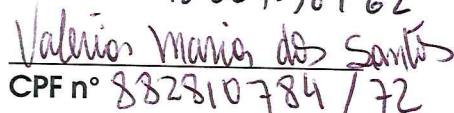 Valerios maria dos Santos
CPF nº 882810784/72